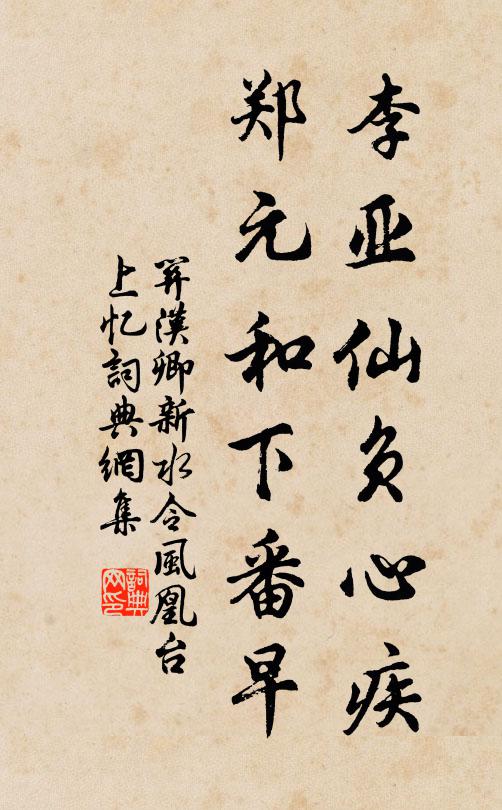 李亚仙负心疾
郑元和下番早
关漢卿新水令風凰台
上忆詞典網集
詞典网印